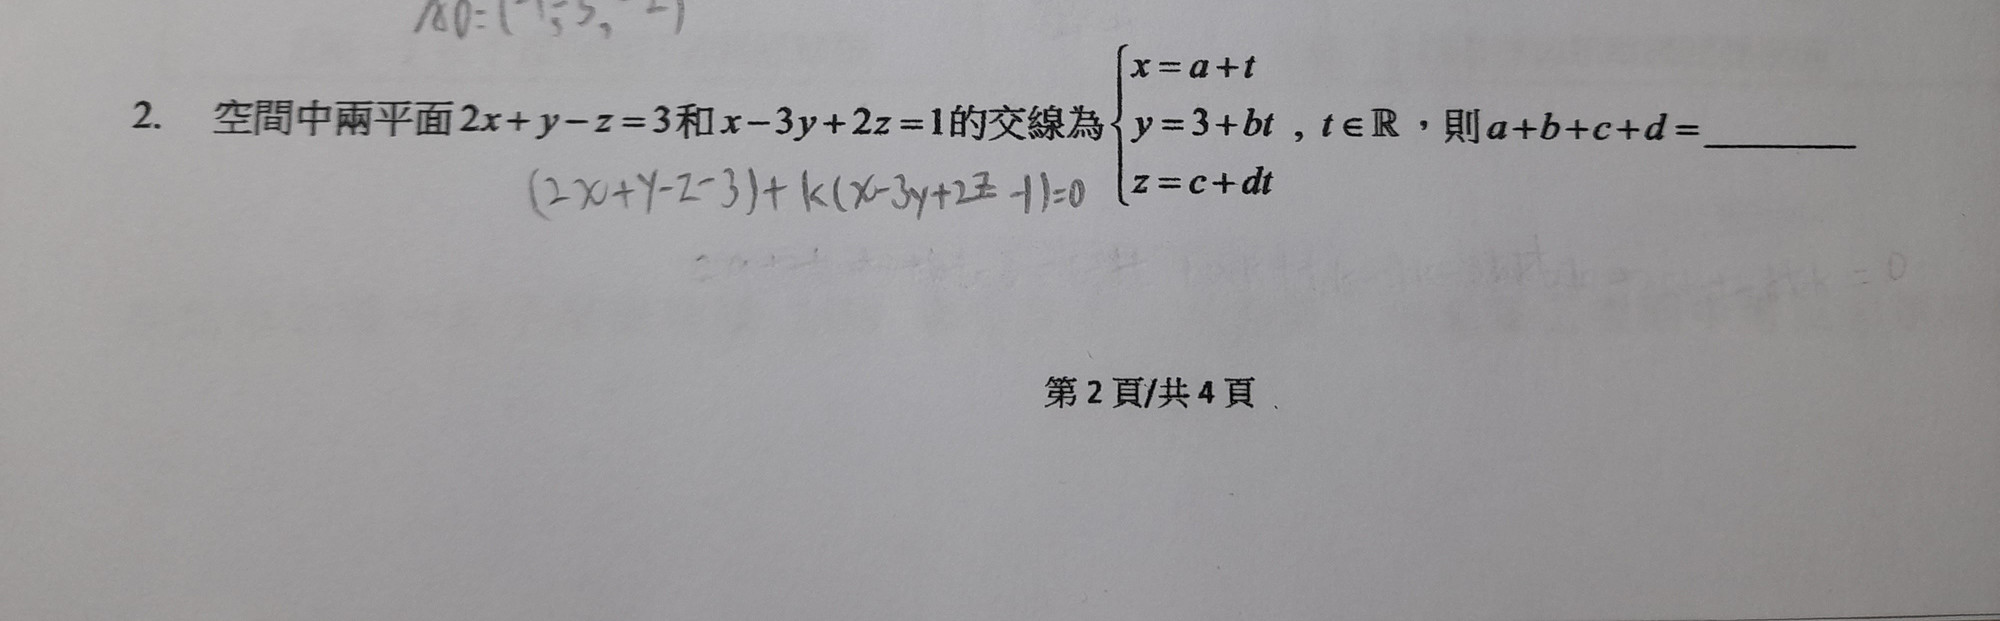 2. 空間中兩平面2x+y−z=3和x−3y+2z=1的交線為{x=a+t y=3+bt z=c+dt , t∈ℝ，則a+b+c+d=________
(2x+y-z-3)+k(x-3y+2z-1)=0
第 2 頁/共 4 頁